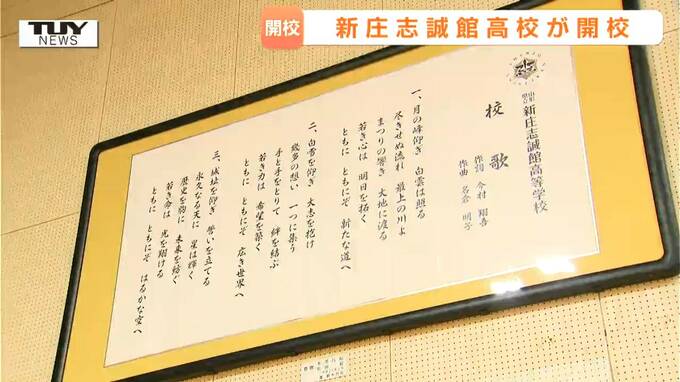 TUY
NEWS
開校
新庄志誠館高校が開校
山形県立
新庄志誠館高等学校
校歌
作詞 今村 翔吾
作曲 名倉 明子
一、月の峰仰ぎ 白雲は踊る
尽きせぬ流れ 最上の川よ
まつりの響き 大地に渡る
若き心は 明日を拓く
ともに ともにぞ 新たな道へ
二、白雪を仰ぎ 大志を抱け
幾多の想い 一つに集う
手と手をとりて 絆を結ぶ
若き力は 希望を築く
ともに ともにぞ 広き世界へ
三、城址を仰ぎ 誓いを立てる
永久なる天に 星は輝く
歴史を胸に 未来を紡ぐ
若き命は 光を翔ける
ともに ともにぞ はるかな空へ